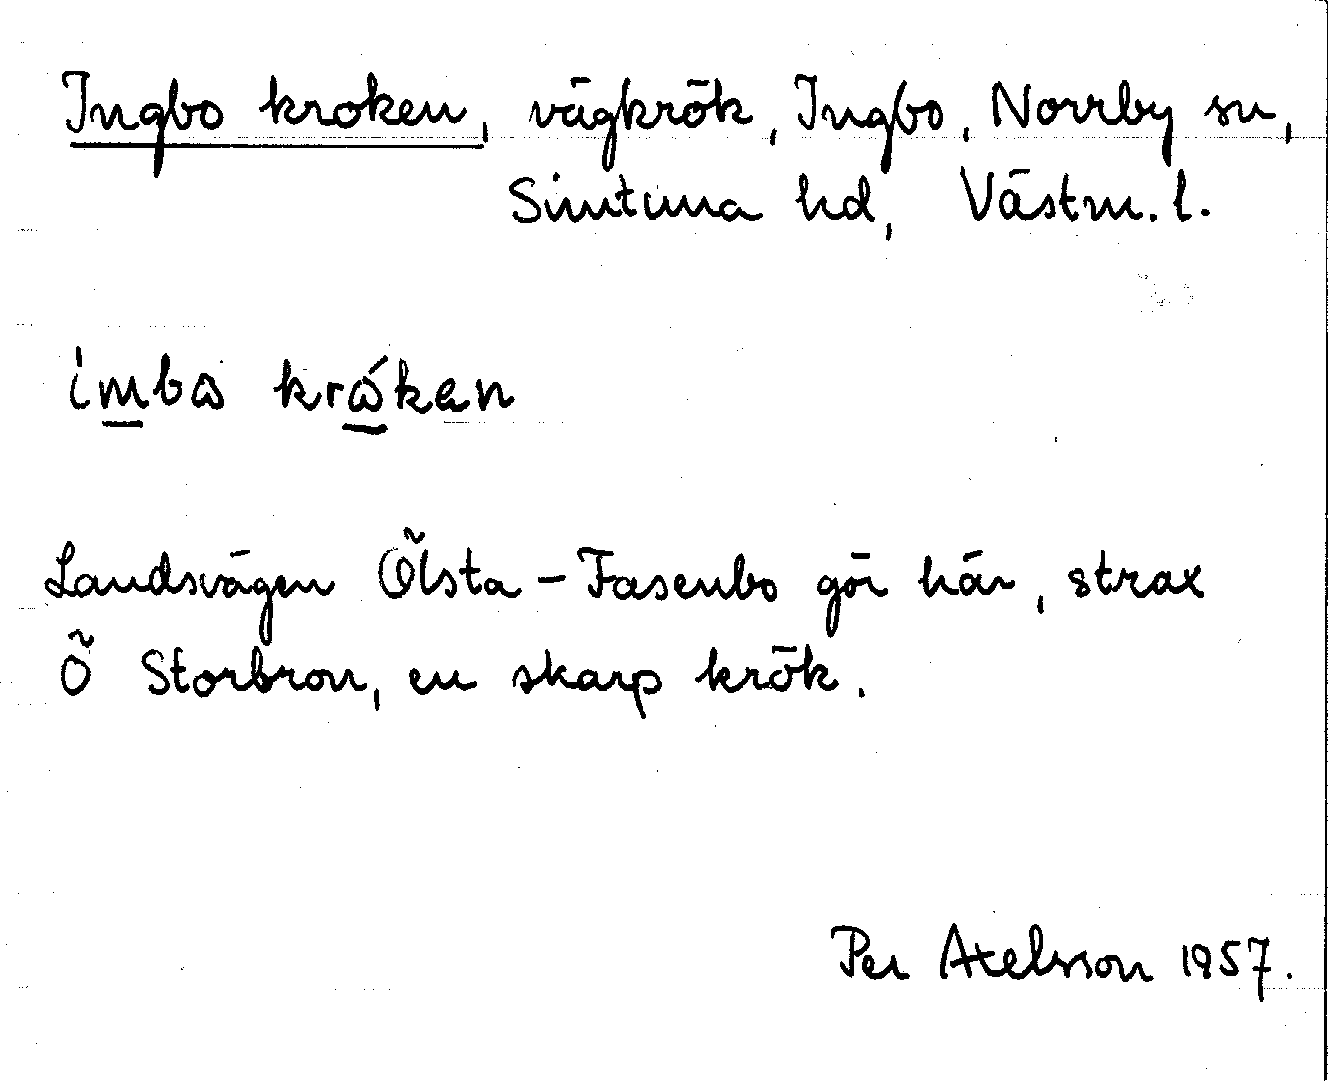 Ingbo kroken, vägkrök, Ingbo, Norrby sn,
Simtuna hd, Västm. l.
imbω krώkan
Landsvägen Ölsta - Fasenbo gör här, strax
Ö Storbron, en skarp krök.
Per Axelsson 1957.